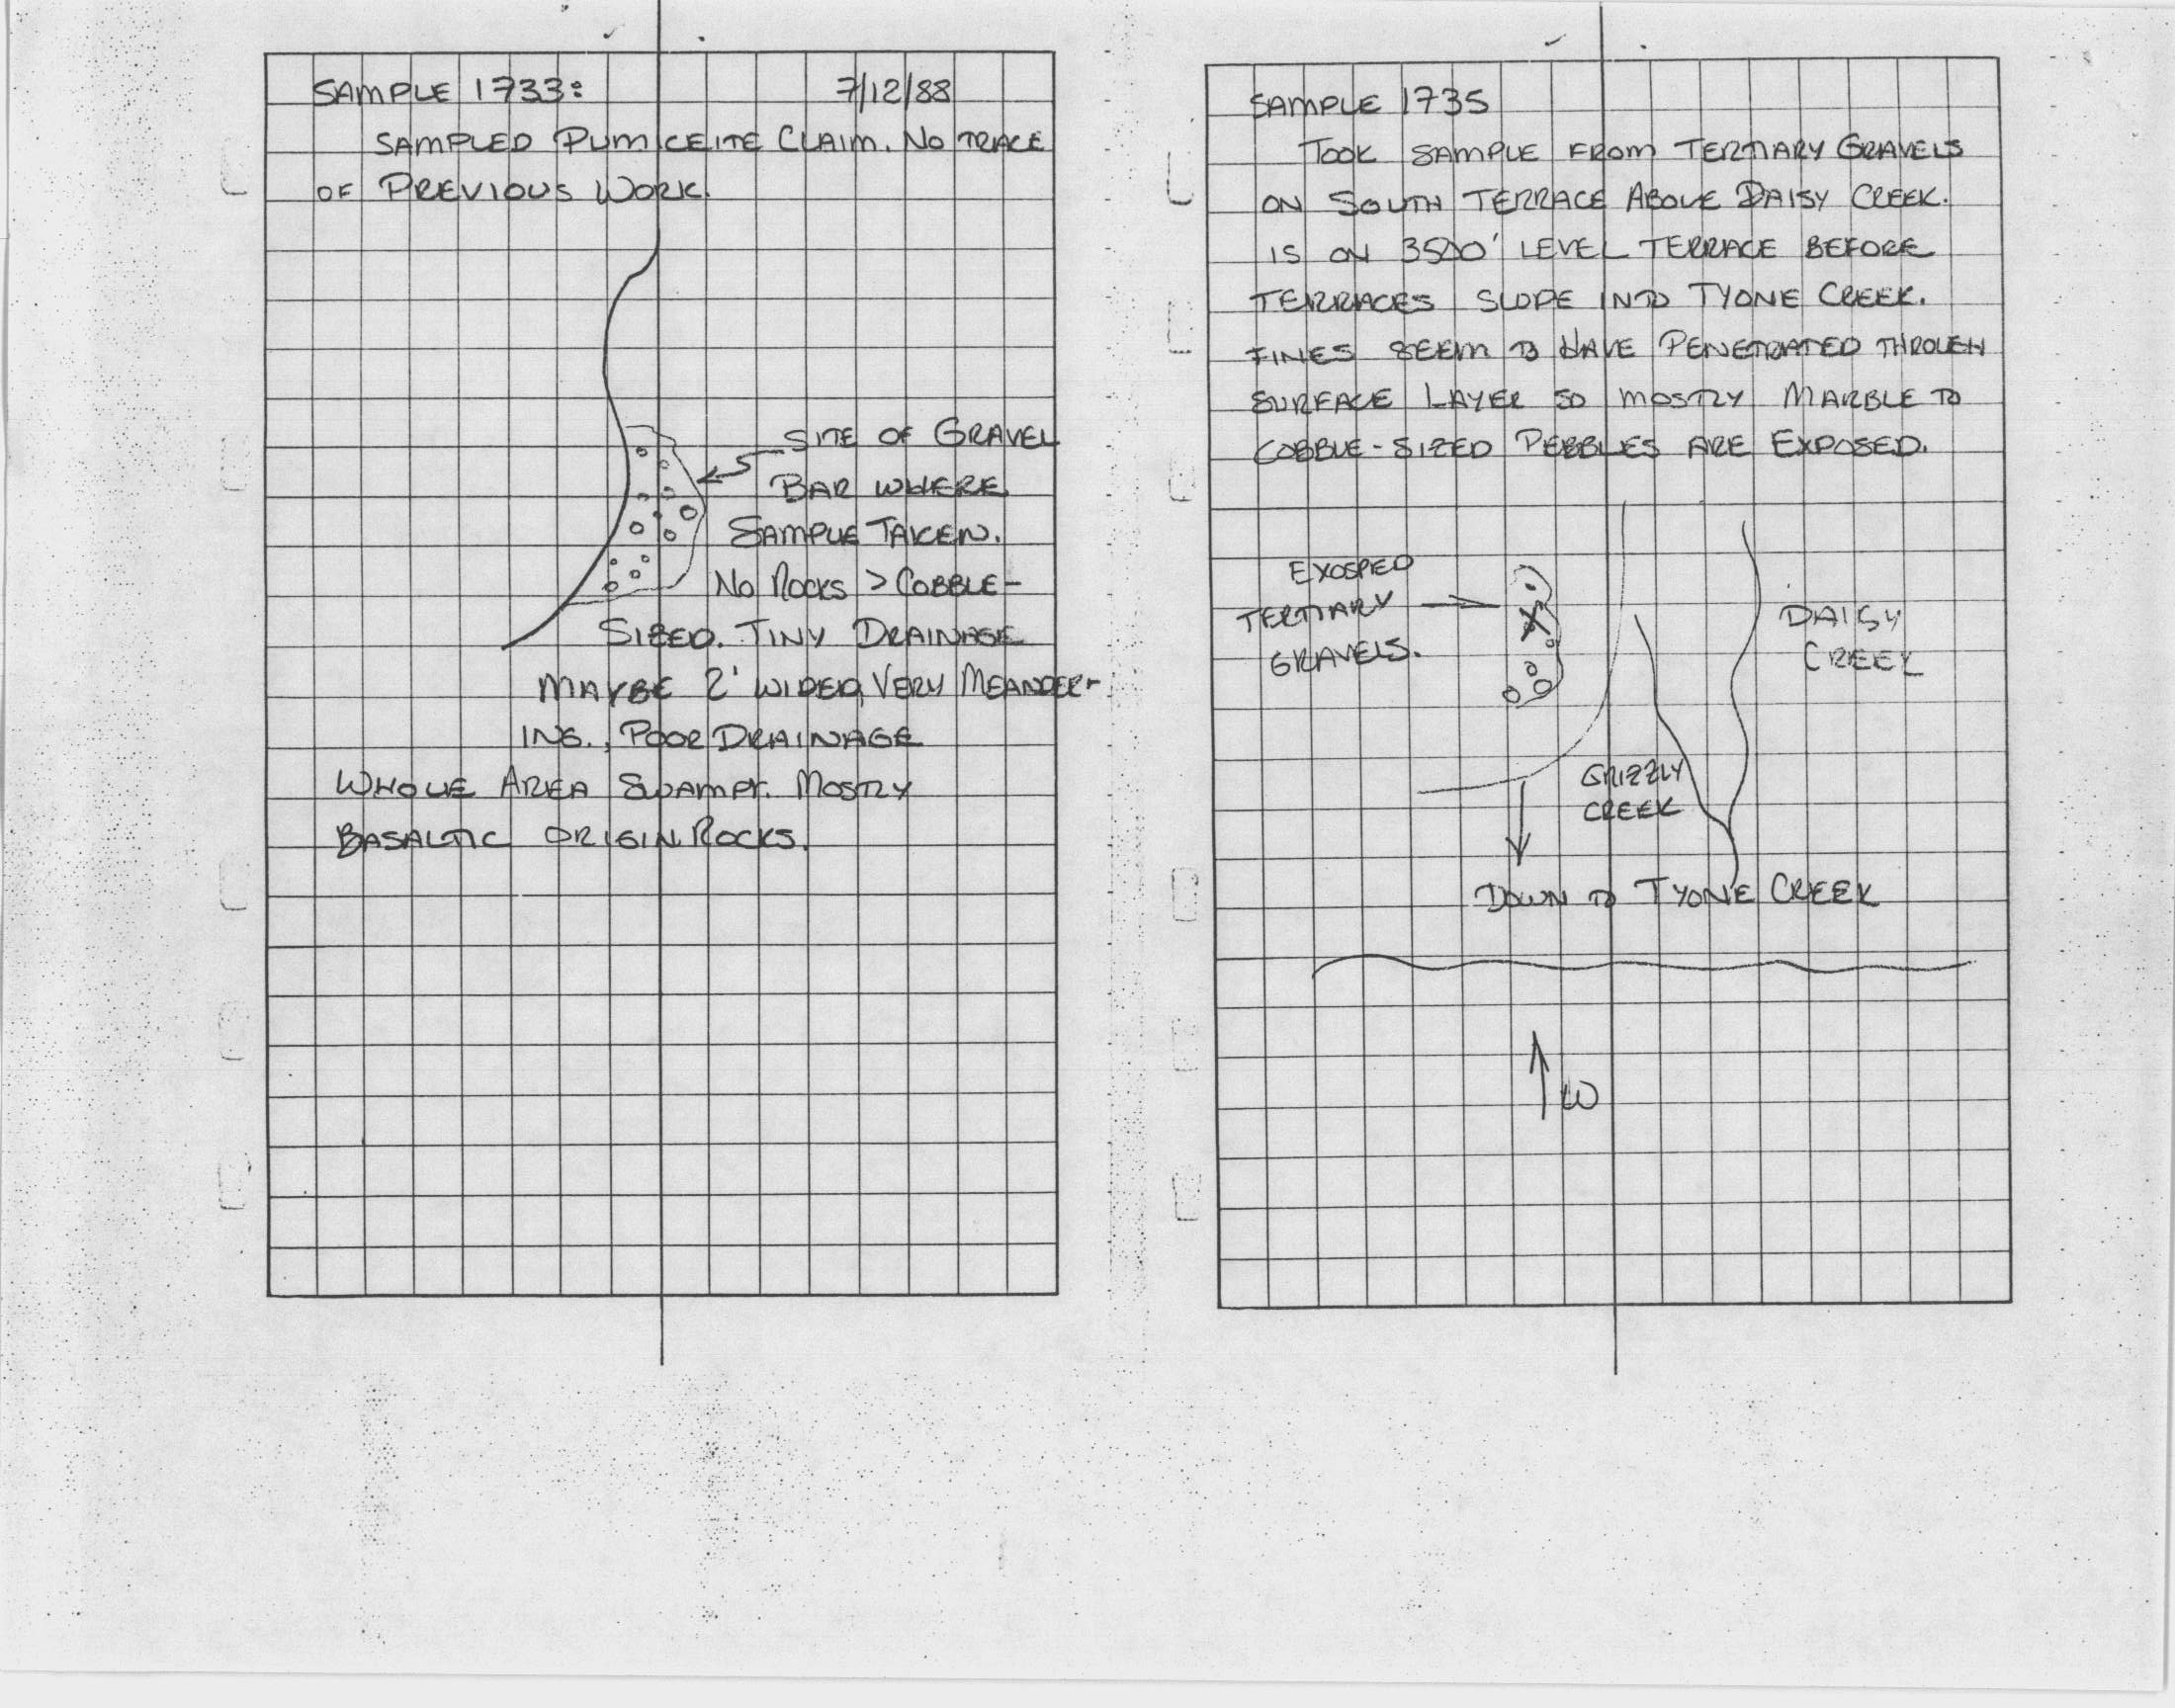 SAMPLE 1733: 7/12/88
SAMPLED PUMICEITE CLAIM. NO TRACE
OF PREVIOUS WORK.
SITE OF GRAVEL
BAR WHERE
SAMPLE TAKEN.
NO ROCKS > COBBLE-
SIZED. TINY DRAINAGE
MAYBE 2' WIDE, VERY MEANDER-
ING., POOR DRAINAGE
WHOLE AREA SWAMPY. MOSTLY
BASALTIC ORIGIN ROCKS.
SAMPLE 1735
TOOK SAMPLE FROM TERTIARY GRAVELS
ON SOUTH TERRACE ABOVE DAISY CREEK.
IS ON 3500' LEVEL TERRACE BEFORE
TERRACES SLOPE INTO TYONE CREEK.
FINES SEEM TO HAVE PENETRATED THROUGH
SURFACE LAYER SO MOSTLY MARBLE TO
COBBLE-SIZED PEBBLES ARE EXPOSED.
EXOSPED
TERTIARY
GRAVELS.
DAISY
CREEK
GRIZZLY
CREEK
DOWN TO TYONE CREEK
W